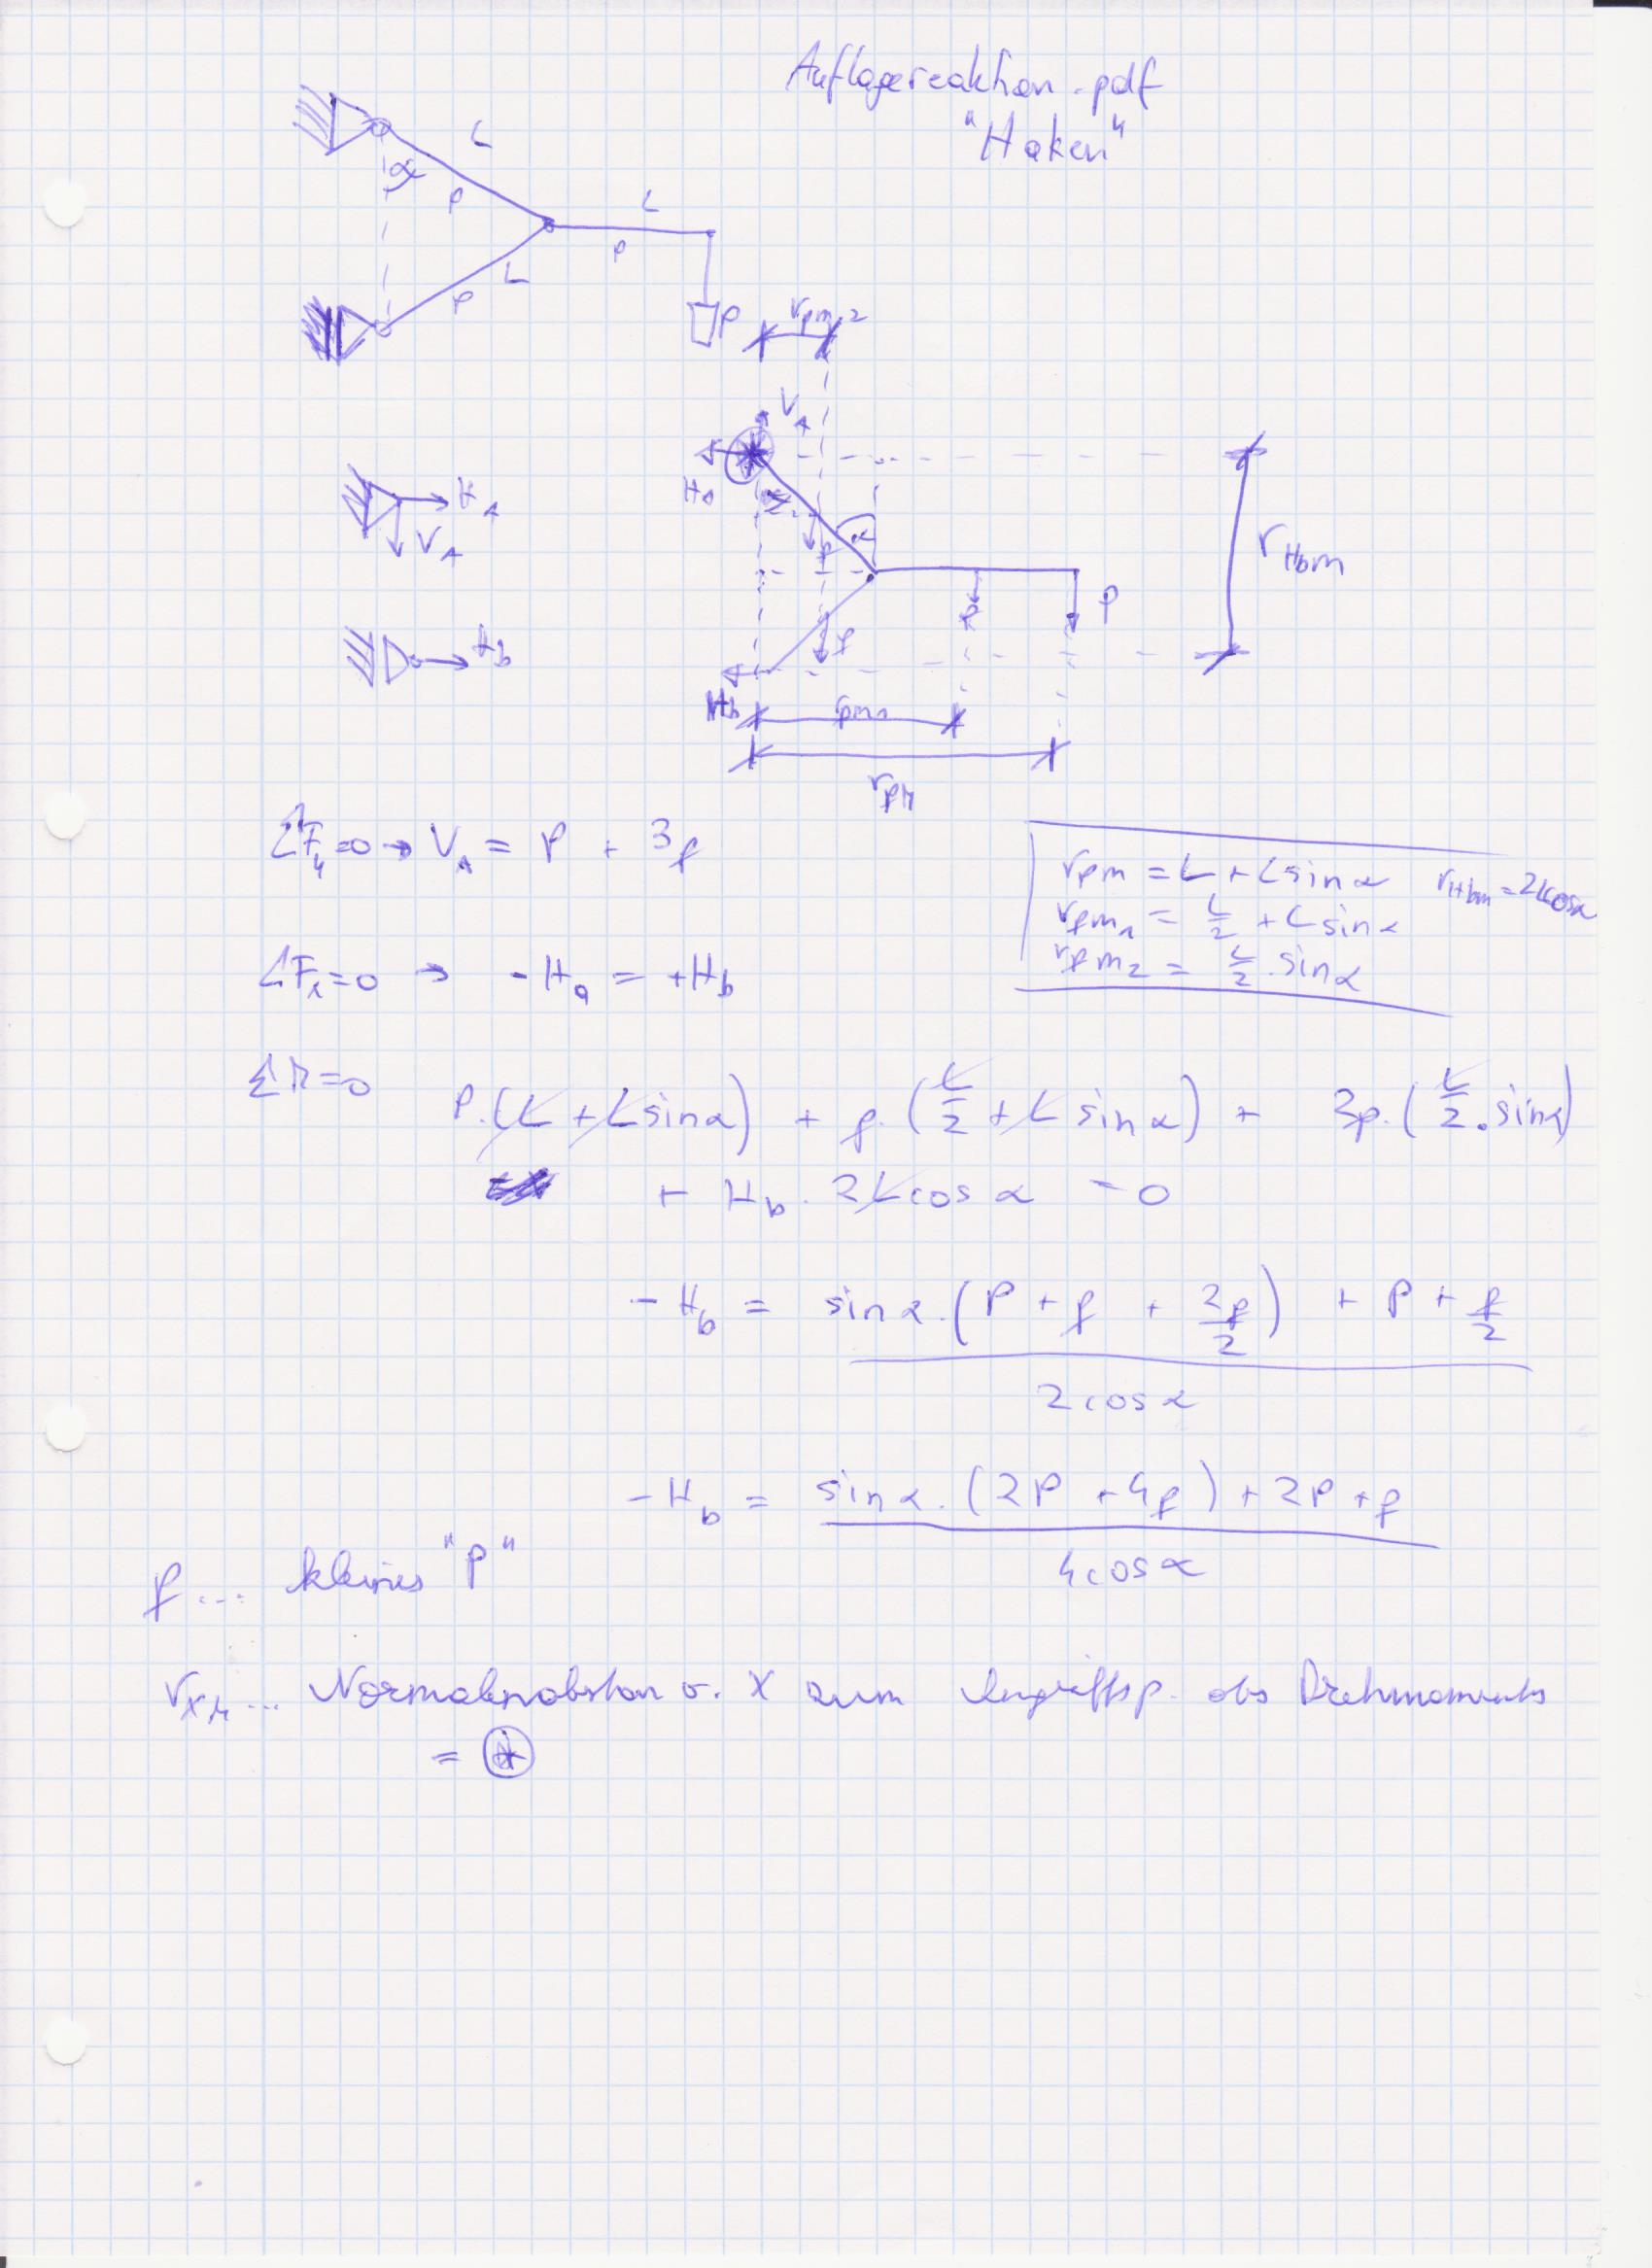 Auflagereaktion.pdf
"Haken"
L
α
p
L
p
L
p
P
r_pm2
V_A
H_A
α
α
p
H_A
V_A
r_Hbm
P
p
p
H_b
H_b
r_pm1
r_PM
ΣF_y=0 → V_A = P + 3p
r_Pm = L + L sin α r_Hbm = 2L cos α
r_pm1 = L/2 + L sin α
r_pm2 = L/2 . sin α
ΣF_x=0 → -H_a = +H_b
ΣM=0 P.(L + L sin α) + p.(L/2 + L sin α) + 2p.(L/2 . sin α)
+ H_b . 2L cos α = 0
- H_b = (sin α.(P + p + 2p/2) + P + p/2) / (2 cos α)
- H_b = (sin α.(2P + 4p) + 2P + p) / (4 cos α)
p ... kleines "p"
r_XM ... Normalenabstan v. X zum Angriffsp. des Drehmoments
= ⊛